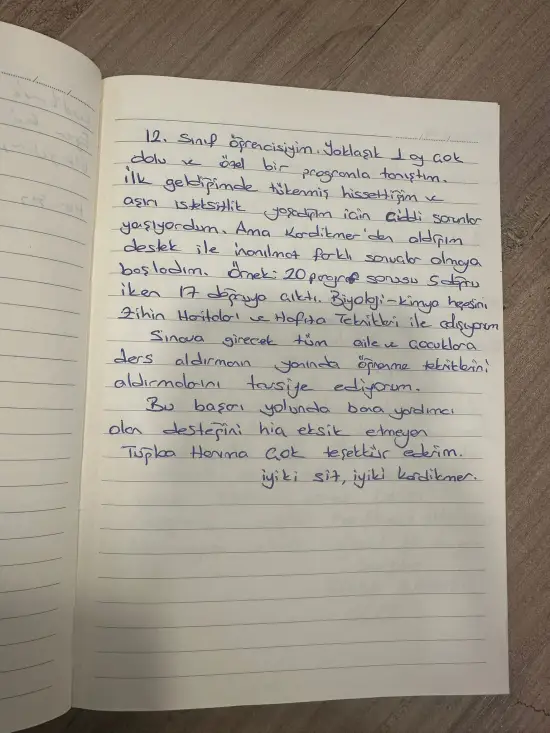 12. Sınıf öğrencisiyim. Yaklaşık 1 ay çok
dolu ve özel bir programla tanıştım.
İlk geldiğimde tükenmiş hissettiğim ve
aşırı isteksizlik yaşadığım için ciddi sorunlar
yaşıyordum. Ama Kardikmer'den aldığım
destek ile inanılmaz farklı sonuçlar almaya
başladım. Örnek: 20 paragraf sorusu 5 doğru
iken 17 doğruya çıktı. Biyoloji-kimya hepsini
Zihin Haritaları ve Hafıza Teknikleri ile çalışıyorum
Sınava girecek tüm aile ve çocuklara
ders aldırmanın yanında öğrenme tekniklerini
aldırmalarını tavsiye ediyorum.
Bu başarı yolunda bana yardımcı
olan desteğini hiç eksik etmeyen
Tuğba Hanıma çok teşekkür ederim.
iyiki siz, iyiki kardikmer.